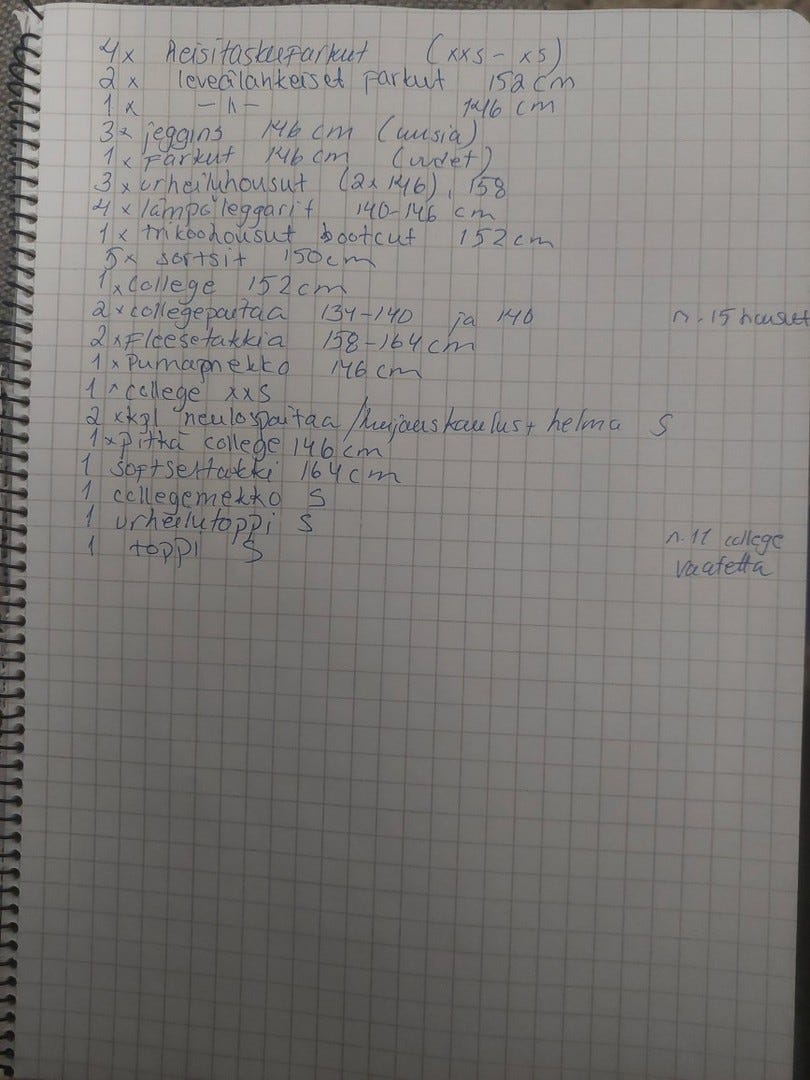 4x reisitaskufarkut (xxs - xs)
2x leveälahkeiset farkut 152 cm
1x - 11 - 146 cm
3x jeggins 146 cm (uusia)
1x Farkut 146 cm (uudet)
3x urheiluhousut (2x 146), 158
4x lämpöleggarit 140-146 cm
1x trikoohousut bootcut 152 cm
5x sortsit 150cm
1x college 152 cm
2x collegepaitaa 134-140 ja 140
n. 15 housut
2x Fleesetakkia 158-164 cm
1x Pumamekko 146 cm
1x college xxs
2 xkpl neulospaitaa / kaulus + helma S
1x pitkä college 146 cm
1 softseltakki 164 cm
1 collegemekko S
1 urheilutoppi S
1 toppi S
n. 11 college
vaatetta